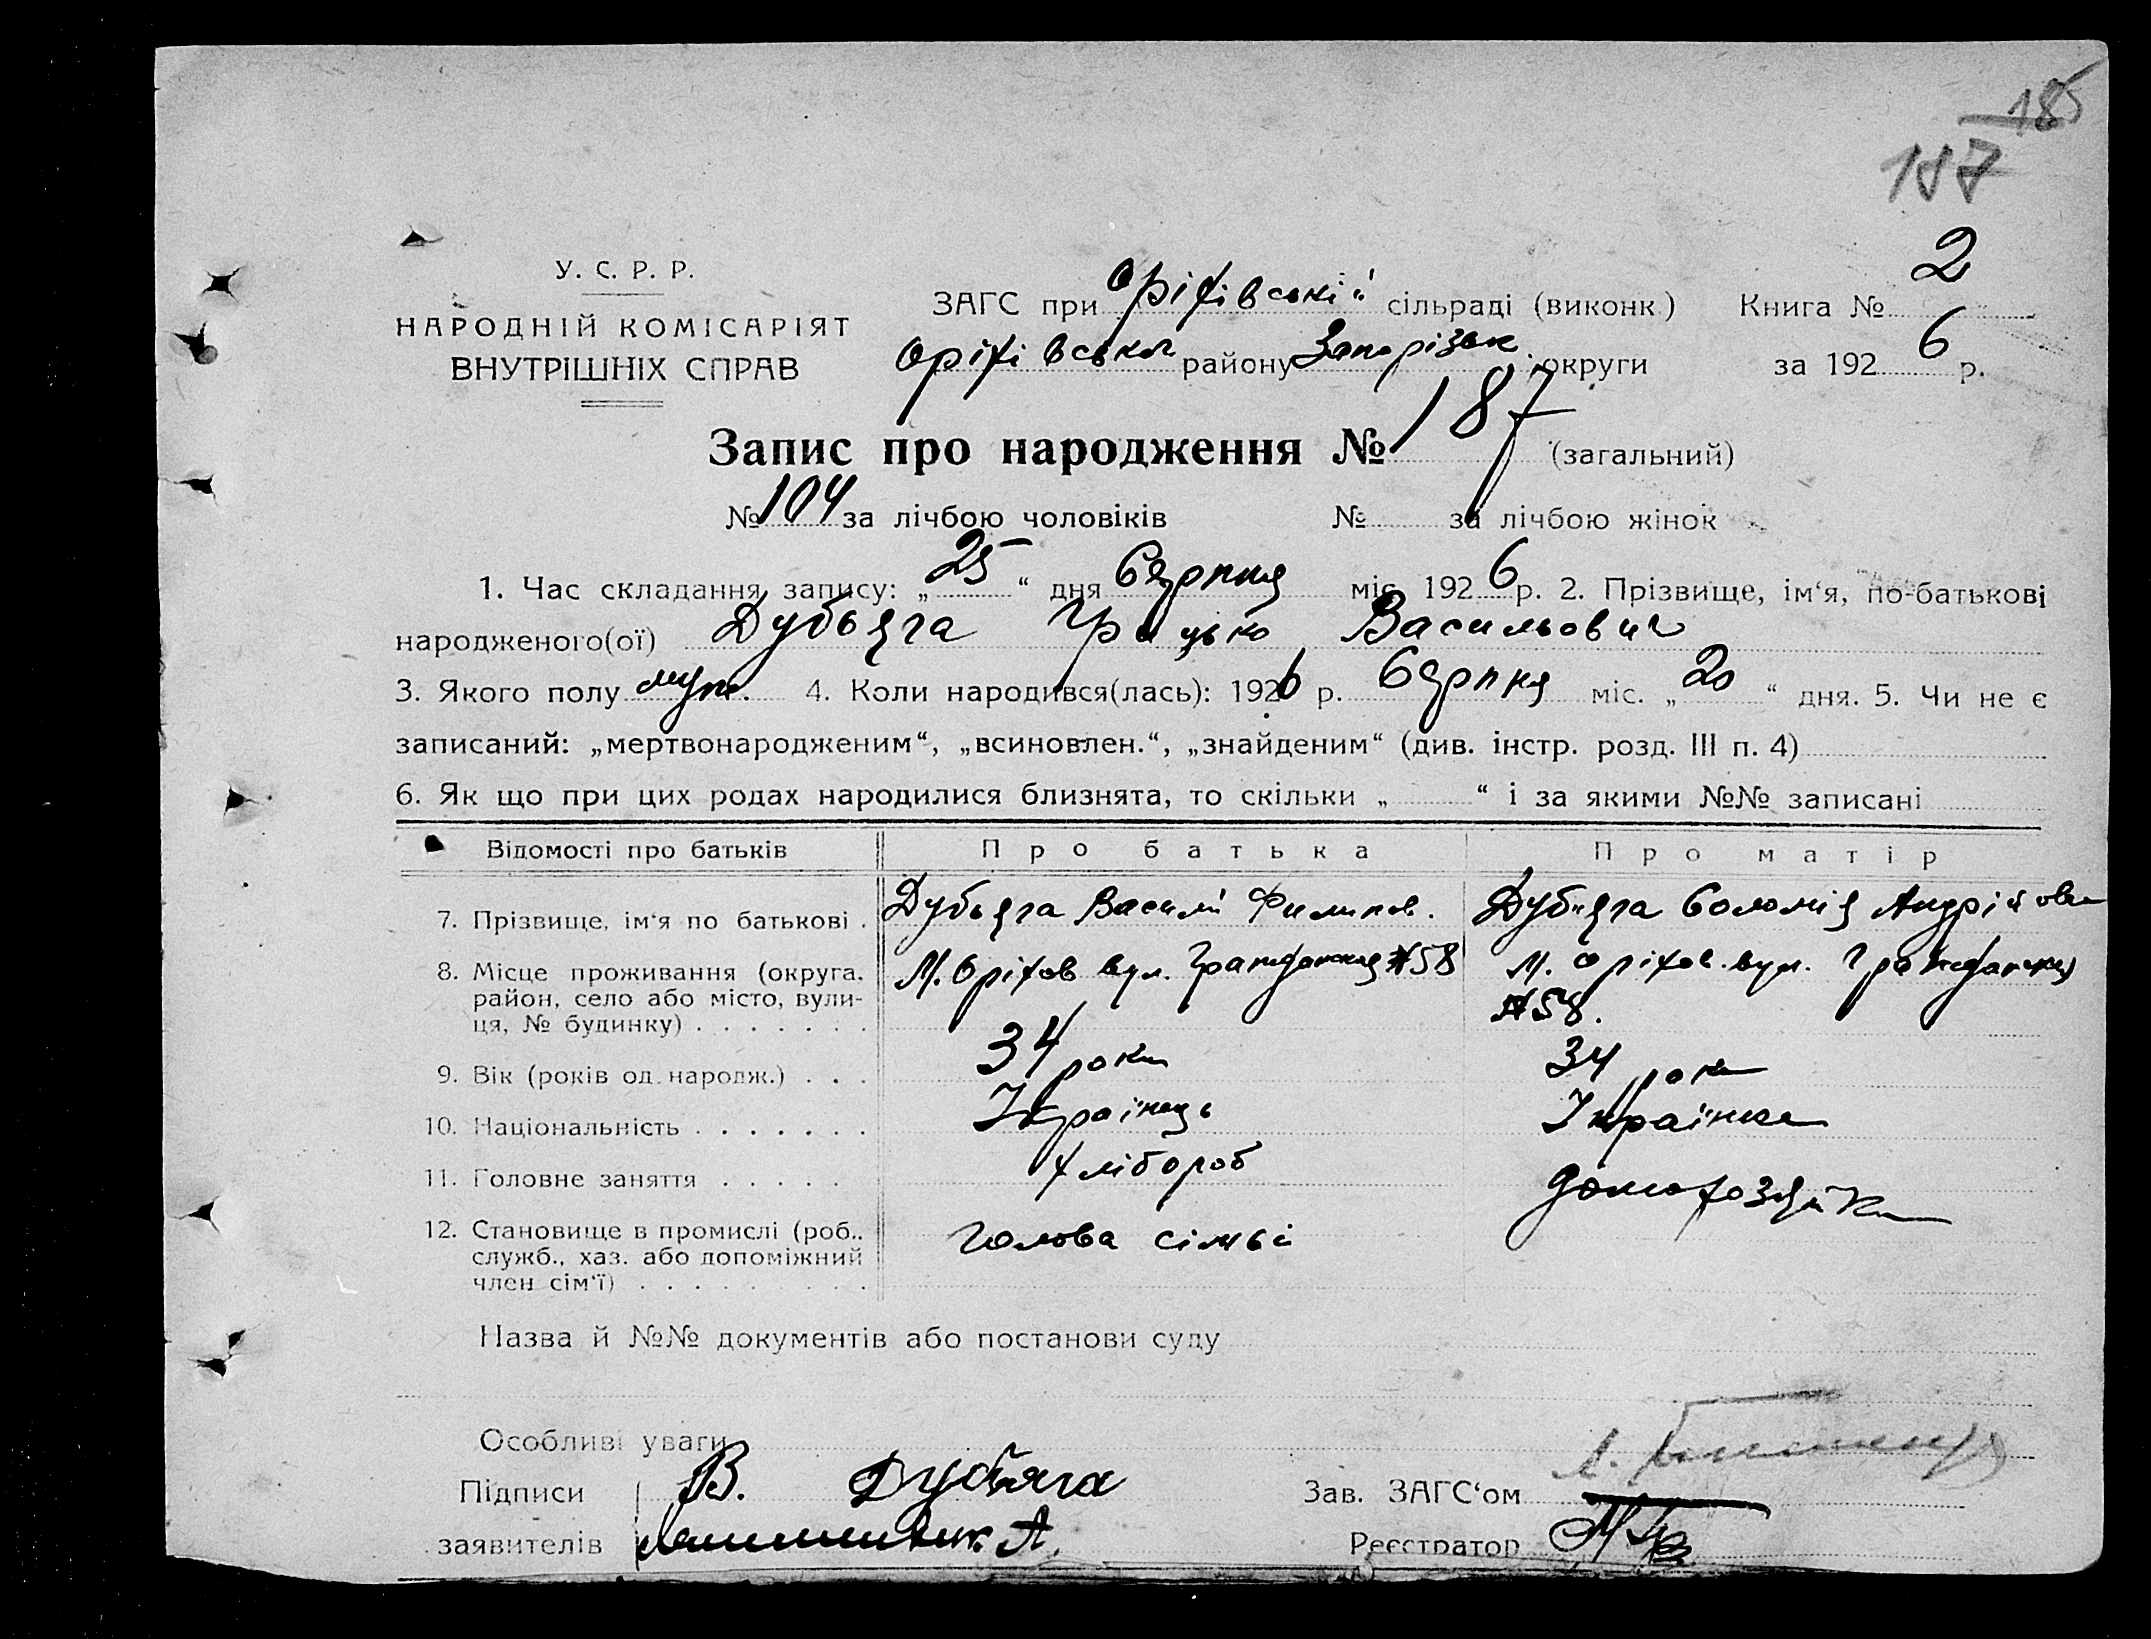 185
187
У. С. Р. Р.
НАРОДНІЙ КОМІСАРІЯТ
ВНУТРІШНІХ СПРАВ
ЗАГС при Оріхівській сільраді (виконк.) Книга № 2
Оріхівськ району Запорізьк округи за 1926 р.
Запис про народження № 187 (загальний)
№ 104 за лічбою чоловіків № за лічбою жінок
1. Час складання запису: „25“ дня Серпня міс. 1926 р. 2. Прізвище, ім‘я, по-батькові
народженого(ої) Дубьяга Грицько Васильович
3. Якого полу муж. 4. Коли народився(лась): 1926 р. Серпня міс. „20“ дня. 5. Чи не є
записаний: „мертвонародженим“, „всиновлен.“, „знайденим“ (див. інстр. розд. III п. 4)
6. Як що при цих родах народилися близнята, то скільки „ “ і за якими №№ записані
Відомості про батьків Про батька Про матір
7. Прізвище, ім‘я по батькові . Дубьяга Василь Филипов. Дубьяга Соломія Андрійовна
8. Місце проживання (округа, район, село або місто, вулиця, № будинку) . . . . . . . М. Оріхов вул. Гражданская №58 М. Оріхов. вул. Гражданская №58.
9. Вік (років од народж.) . . . 34 роки 34 роки
10. Національність . . . . . . . Українець Українка
11. Головне заняття . . . . . Хлібороб домохозяйка
12. Становище в промислі (роб., служб., хаз. або допоміжний член сім‘ї) . . . . . . . . . голова сімьі
Назва й №№ документів або постанови суду
Особливі уваги
Підписи В. Дубяга Зав. ЗАГС‘ом
заявителів А. Реєстратор